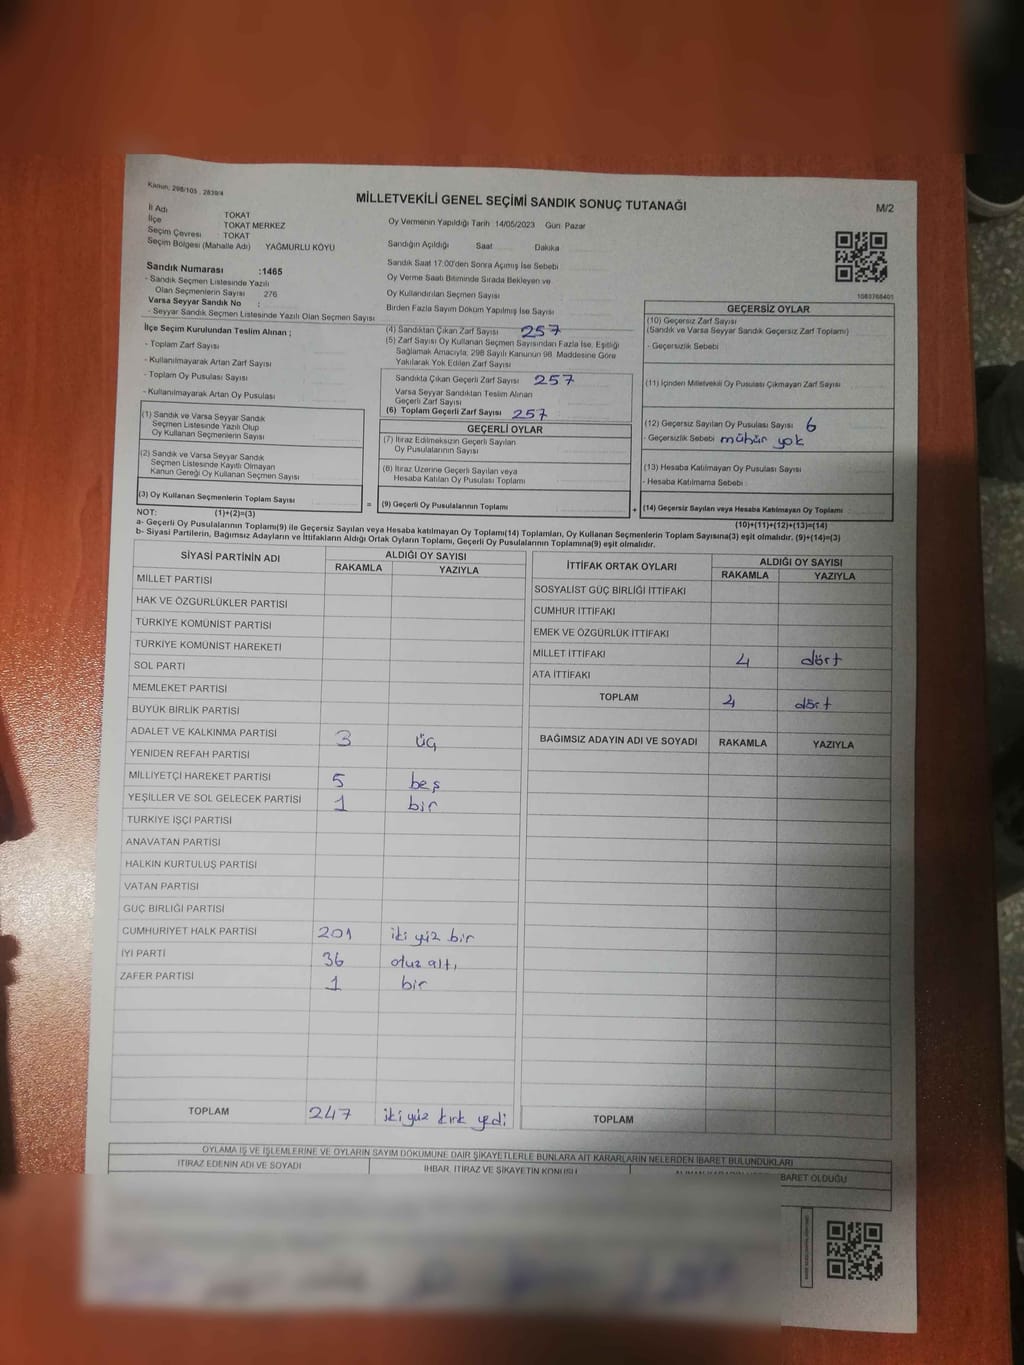 Kanun: 298/105 . 2839/4
MİLLETVEKİLİ GENEL SEÇİMİ SANDIK SONUÇ TUTANAĞI
M/2
İl Adı TOKAT
İlçe TOKAT MERKEZ
Seçim Çevresi TOKAT
Seçim Bölgesi (Mahalle Adı) YAĞMURLU KÖYÜ
Oy Vermenin Yapıldığı Tarih 14/05/2023 Gün: Pazar
Sandığın Açıldığı Saat Dakika
Sandık Saat 17:00'den Sonra Açılmış İse Sebebi
Oy Verme Saati Bitiminde Sırada Bekleyen ve
Oy Kullandırılan Seçmen Sayısı
Birden Fazla Sayım Döküm Yapılmış İse Sayısı
Sandık Numarası :1465
- Sandık Seçmen Listesinde Yazılı
Olan Seçmenlerin Sayısı 276
Varsa Seyyar Sandık No :
- Seyyar Sandık Seçmen Listesinde Yazılı Olan Seçmen Sayısı
İlçe Seçim Kurulundan Teslim Alınan ;
- Toplam Zarf Sayısı
- Kullanılmayarak Artan Zarf Sayısı
- Toplam Oy Pusulası Sayısı
- Kullanılmayarak Artan Oy Pusulası
(1) Sandık ve Varsa Seyyar Sandık
Seçmen Listesinde Yazılı Olup
Oy Kullanan Seçmenlerin Sayısı
(2) Sandık ve Varsa Seyyar Sandık
Seçmen Listesinde Kayıtlı Olmayan
Kanun Gereği Oy Kullanan Seçmen Sayısı
(3) Oy Kullanan Seçmenlerin Toplam Sayısı
(4) Sandıktan Çıkan Zarf Sayısı 257
(5) Zarf Sayısı Oy Kullanan Seçmen Sayısından Fazla İse, Eşitliği
Sağlamak Amacıyla, 298 Sayılı Kanunun 98. Maddesine Göre
Yakılarak Yok Edilen Zarf Sayısı
Sandıkta Çıkan Geçerli Zarf Sayısı 257
Varsa Seyyar Sandıktan Teslim Alınan
Geçerli Zarf Sayısı
(6) Toplam Geçerli Zarf Sayısı 257
GEÇERLİ OYLAR
(7) İtiraz Edilmeksizin Geçerli Sayılan
Oy Pusulalarının Sayısı
(8) İtiraz Üzerine Geçerli Sayılan veya
Hesaba Katılan Oy Pusulası Toplamı
= (9) Geçerli Oy Pusulalarının Toplamı
1080768401
GEÇERSİZ OYLAR
(10) Geçersiz Zarf Sayısı
(Sandık ve Varsa Seyyar Sandık Geçersiz Zarf Toplamı)
- Geçersizlik Sebebi
(11) İçinden Milletvekili Oy Pusulası Çıkmayan Zarf Sayısı
(12) Geçersiz Sayılan Oy Pusulası Sayısı 6
- Geçersizlik Sebebi mühür yok
(13) Hesaba Katılmayan Oy Pusulası Sayısı
- Hesaba Katılmama Sebebi
+ (14) Geçersiz Sayılan veya Hesaba Katılmayan Oy Toplamı
NOT: (1)+(2)=(3) (10)+(11)+(12)+(13)=(14)
a- Geçerli Oy Pusulalarının Toplamı(9) ile Geçersiz Sayılan veya Hesaba katılmayan Oy Toplamı(14) Toplamları, Oy Kullanan Seçmenlerin Toplam Sayısına(3) eşit olmalıdır. (9)+(14)=(3)
b- Siyasi Partilerin, Bağımsız Adayların ve İttifakların Aldığı Ortak Oyların Toplamı, Geçerli Oy Pusulalarının Toplamına(9) eşit olmalıdır.
SİYASİ PARTİNİN ADI ALDIĞI OY SAYISI
RAKAMLA YAZIYLA
MİLLET PARTİSİ
HAK VE ÖZGÜRLÜKLER PARTİSİ
TÜRKİYE KOMÜNİST PARTİSİ
TÜRKİYE KOMÜNİST HAREKETİ
SOL PARTİ
MEMLEKET PARTİSİ
BÜYÜK BİRLİK PARTİSİ
ADALET VE KALKINMA PARTİSİ 3 üç
YENİDEN REFAH PARTİSİ
MİLLİYETÇİ HAREKET PARTİSİ 5 beş
YEŞİLLER VE SOL GELECEK PARTİSİ 1 bir
TÜRKİYE İŞÇİ PARTİSİ
ANAVATAN PARTİSİ
HALKIN KURTULUŞ PARTİSİ
VATAN PARTİSİ
GÜÇ BİRLİĞİ PARTİSİ
CUMHURİYET HALK PARTİSİ 201 iki yüz bir
İYİ PARTİ 36 otuz altı
ZAFER PARTİSİ 1 bir
TOPLAM 247 iki yüz kırk yedi
İTTİFAK ORTAK OYLARI ALDIĞI OY SAYISI
RAKAMLA YAZIYLA
SOSYALİST GÜÇ BİRLİĞİ İTTİFAKI
CUMHUR İTTİFAKI
EMEK VE ÖZGÜRLÜK İTTİFAKI
MİLLET İTTİFAKI 4 dört
ATA İTTİFAKI
TOPLAM 4 dört
BAĞIMSIZ ADAYIN ADI VE SOYADI RAKAMLA YAZIYLA
TOPLAM
OYLAMA İŞ VE İŞLEMLERİNE VE OYLARIN SAYIM DÖKÜMÜNE DAİR ŞİKAYETLERLE BUNLARA AİT KARARLARIN NELERDEN İBARET BULUNDUKLARI
İTİRAZ EDENİN ADI VE SOYADI İHBAR, İTİRAZ VE ŞİKAYETİN KONUSU
İBARET OLDUĞU